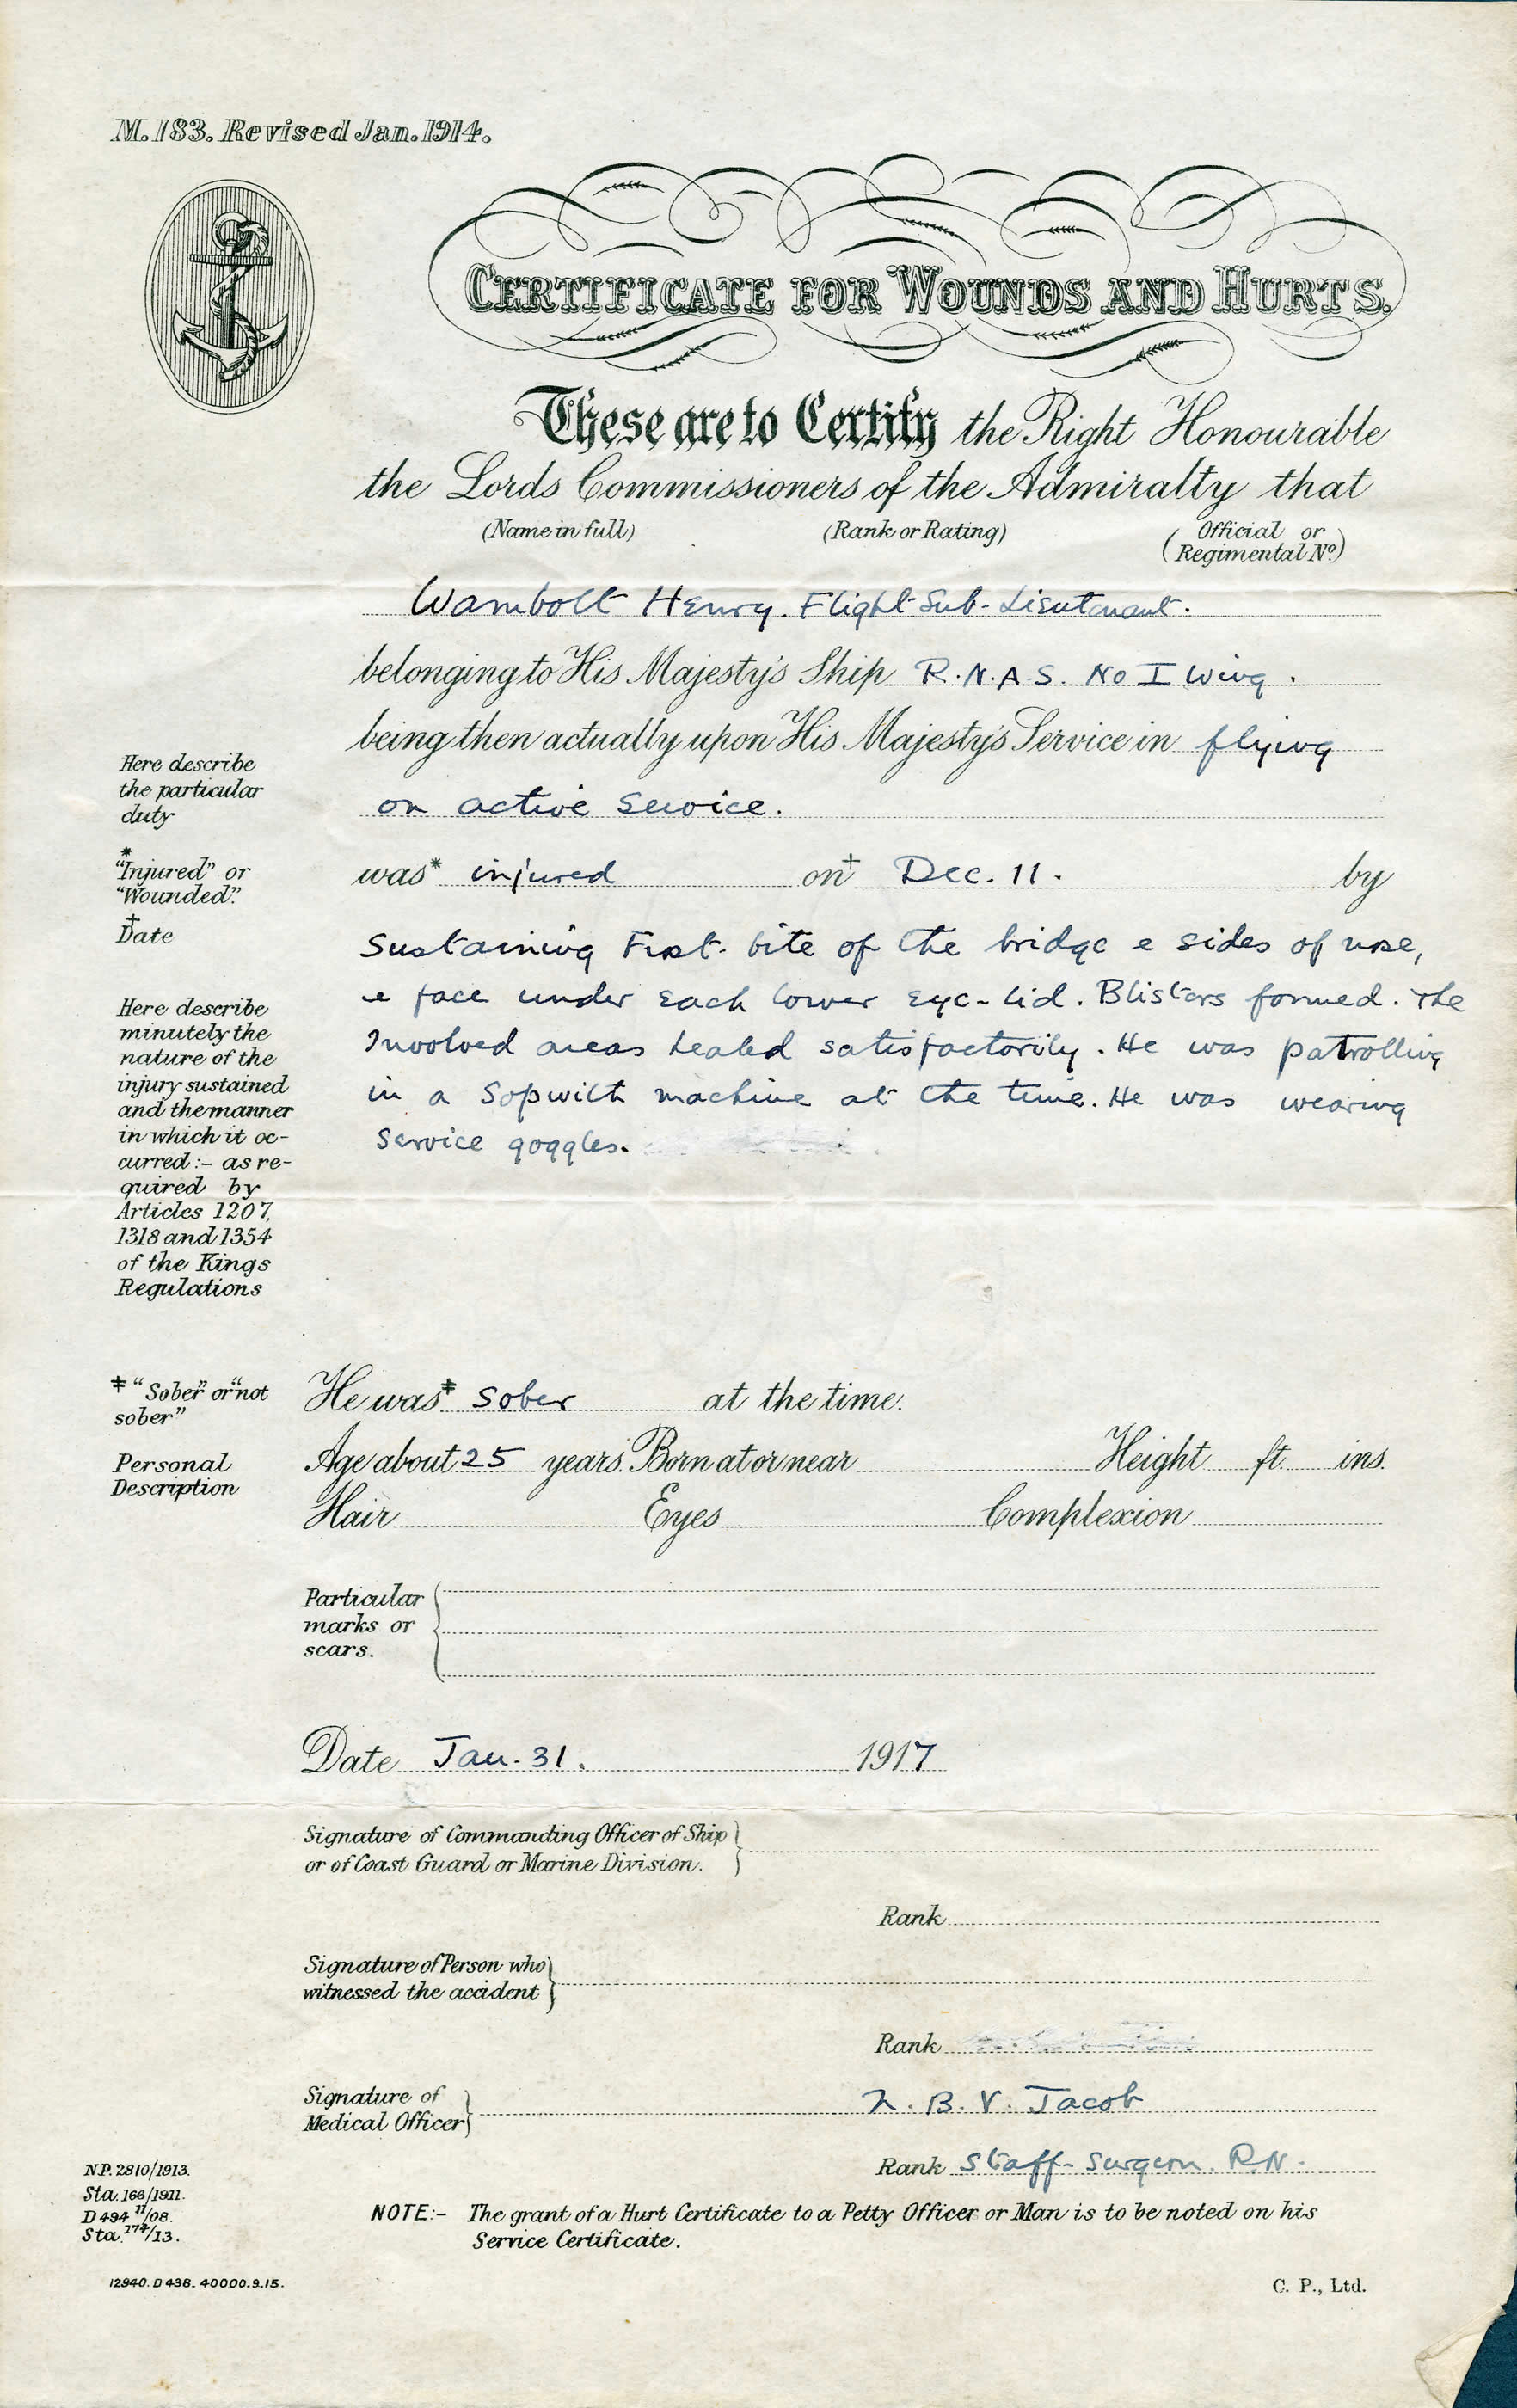 M.183. Revised Jan. 1914.
CERTIFICATE FOR WOUNDS AND HURTS.
These are to Certify the Right Honourable
the Lords Commissioners of the Admiralty that
(Name in full) (Rank or Rating) (Official or Regimental No.)
Wambolt Henry. Flight Sub-Lieutenant.
belonging to His Majesty's Ship R.N.A.S. No I Wing.
being then actually upon His Majesty's Service in flying
Here describe
the particular
duty
on active Service.
* "Injured" or
"Wounded".
† Date
was* injured on† Dec. 11. by
Sustaining Frost-bite of the bridge e sides of nose,
e face under each lower eye-lid. Blisters formed. The
Involved areas healed satisfactorily. He was patrolling
in a Sopwith machine at the time. He was wearing
Service goggles.
Here describe
minutely the
nature of the
injury sustained
and the manner
in which it oc-
curred:- as re-
quired by
Articles 1207,
1318 and 1354
of the Kings
Regulations
‡ "Sober" or "not
sober"
He was‡ Sober at the time.
Personal
Description
Age about 25 years. Born at or near Height ft. ins.
Hair Eyes Complexion
Particular
marks or
scars.
Date Jan. 31. 1917
Signature of Commanding Officer of Ship
or of Coast Guard or Marine Division.
Rank
Signature of Person who
witnessed the accident
Rank
Signature of
Medical Officer
B. V. Jacob
Rank Staff-Surgeon. R.N.
N.P. 2810/1913.
Sta. 166/1911.
D 494 11/08.
Sta. 174/13.
NOTE:- The grant of a Hurt Certificate to a Petty Officer or Man is to be noted on his
Service Certificate.
12940. D 438. 40000. 9. 15.
C. P., Ltd.